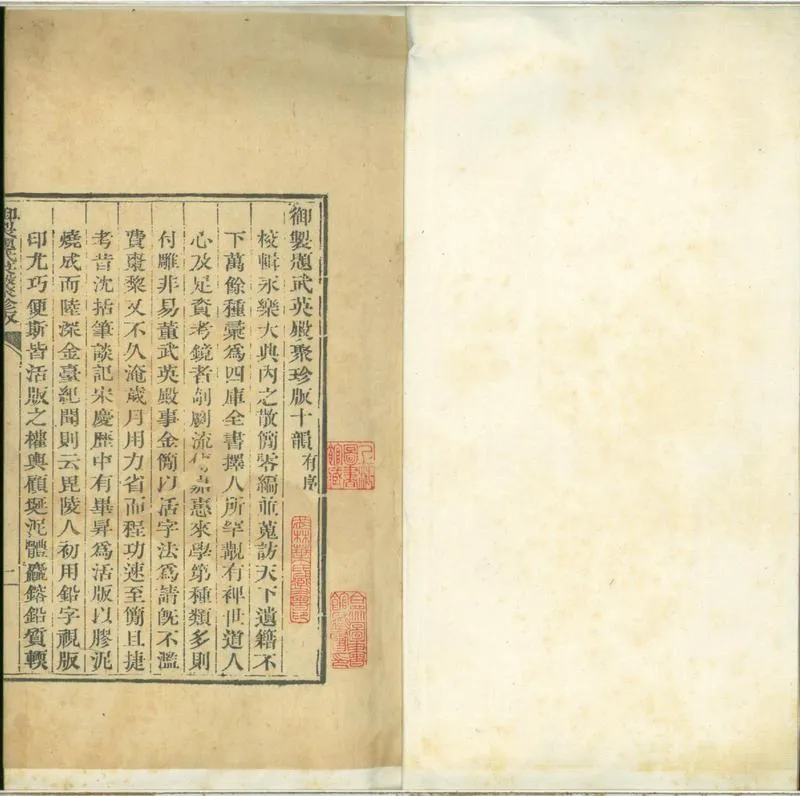 御製題武英殿聚珍版十韻有序
校輯永樂大典內之散簡零編並蒐訪天下遺籍不
下萬餘種彙為四庫全書擇人所罕覯有裨世道人
心及足資考鏡者剞劂流傳嘉惠來學第種類多則
付雕非易董武英殿事金簡以活字法為請既不濫
費棗棃又不久淹歲月用力省而程功速至簡且捷
考昔沈括筆談記宋慶歷中有畢昇為活版以膠泥
燒成而陸深金臺紀聞則云毘陵人初用鉛字視版
印尤巧便斯皆活版之權輿顧埏泥體麤鎔鉛質輭
御製題武英殿聚珍版
一